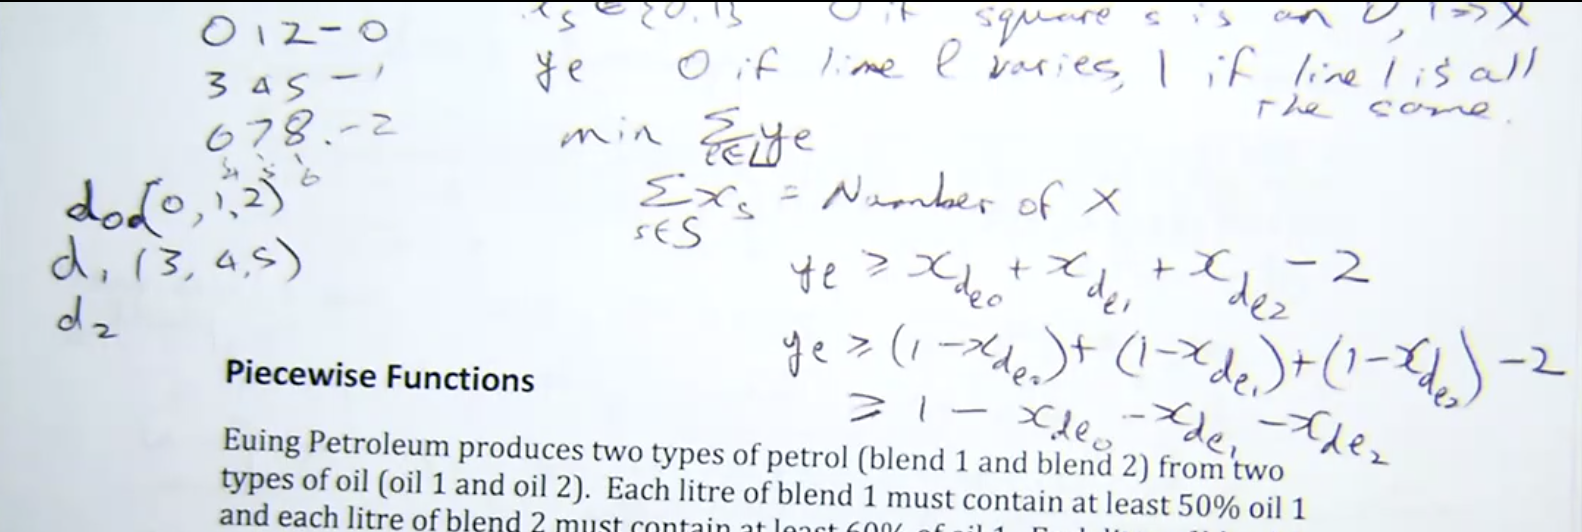 0 1 2 - 0
3 4 5 - 1
6 7 8. - 2
3 4 5 6
d0 (0, 1, 2)
d1 (3, 4, 5)
d2
xs ∈ {0,1} 0 if square s is an O, 1 => X
yℓ 0 if line ℓ varies, 1 if line ℓ is all
the same.
min Σ yℓ
ℓ∈L
Σ xs = Number of X
s∈S
yℓ ≥ x_dℓ0 + x_dℓ1 + x_dℓ2 - 2
yℓ ≥ (1 - x_dℓ0) + (1 - x_dℓ1) + (1 - x_dℓ2) - 2
≥ 1 - x_dℓ0 - x_dℓ1 - x_dℓ2
Piecewise Functions
Euing Petroleum produces two types of petrol (blend 1 and blend 2) from two
types of oil (oil 1 and oil 2). Each litre of blend 1 must contain at least 50% oil 1
and each litre of blend 2 must contain at least 60% of oil 1.